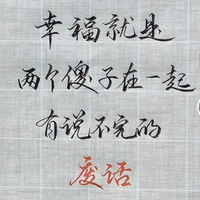 幸福就是
两个傻子在一起
有说不完的
废话